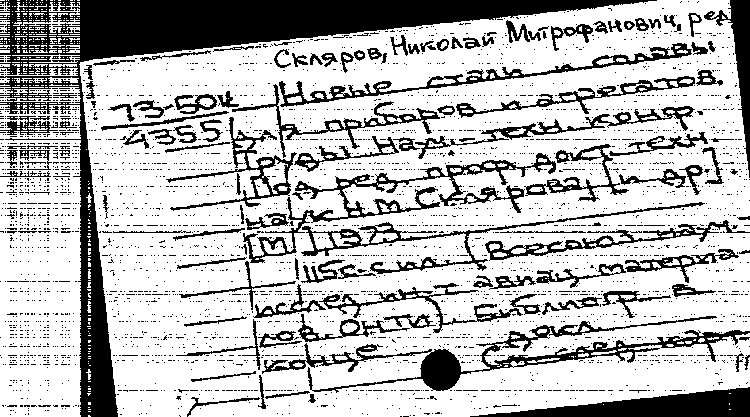 Скляров, Николай Митрофанович, ред.
73-50к
4355
Новые стали и сплавы
для приборов и агрегатов.
Труды науч.-техн. конф.
Под ред. проф, докт. техн.
наук Н.М. Склярова, [и др.].
[М], 1973
115с. с ил. (Всесоюз науч.-
исслед ин-т авиац материа-
лов. ОНТИ). Библиогр. в
конце докл.
(См. след. карт